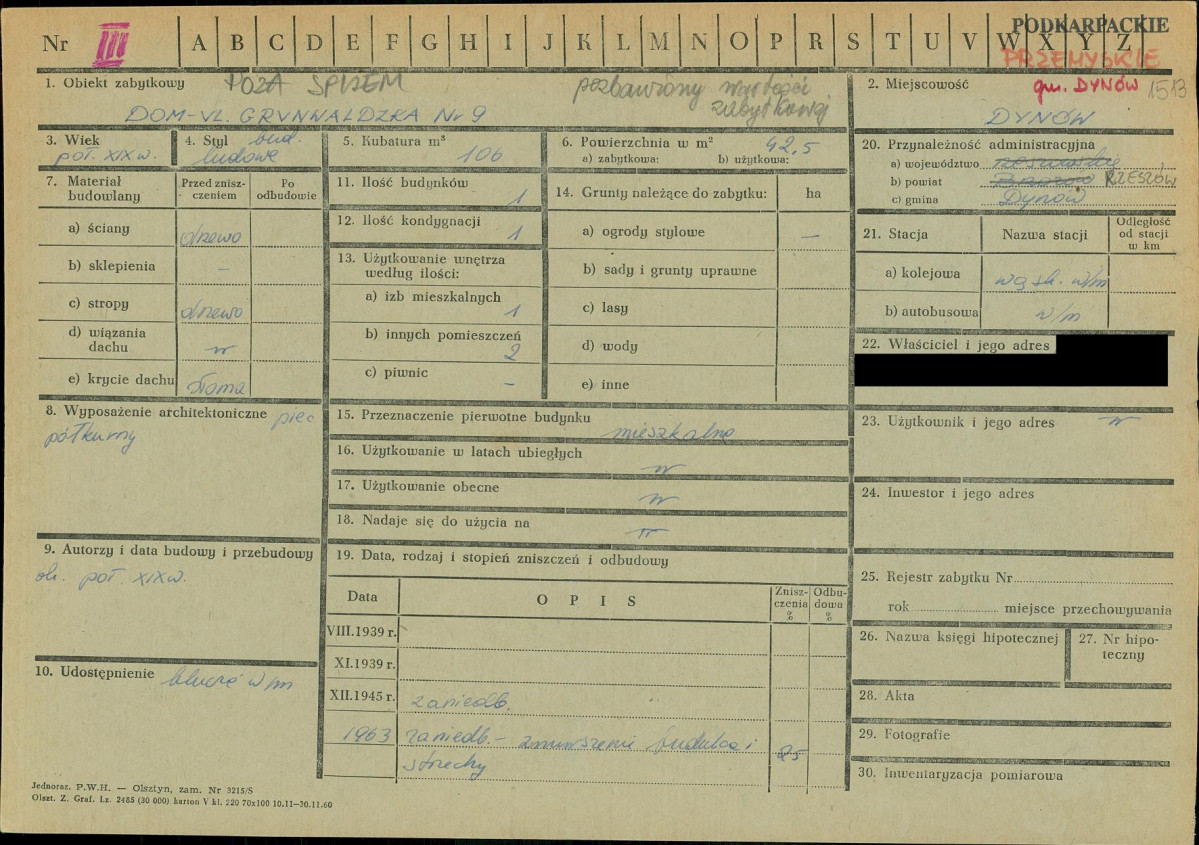 PODKARPACKIE
Nr III A B C D E F G H I J K L M N O P R S T U V W X Y Z
PRZEMYSKIE
1. Obiekt zabytkowy POZA SPISEM pozbawiony wartości
zabytkowej
DOM - UL. GRUNWALDZKA Nr 9
2. Miejscowość gm. DYNÓW 1513
DYNÓW
3. Wiek
poł. XIX w.
4. Styl bud.
ludowe
5. Kubatura m³
106
6. Powierzchnia w m² 42,5
a) zabytkowa: b) użytkowa:
7. Materiał
budowlany
Przed znisz-
czeniem
Po
odbudowie
a) ściany drzewo
b) sklepienia –
c) stropy drzewo
d) wiązania
dachu "
e) krycie dachu słoma
8. Wyposażenie architektoniczne piec
półkurny
9. Autorzy i data budowy i przebudowy
ok. poł. XIX w.
10. Udostępnienie klucze w/m
11. Ilość budynków 1
12. Ilość kondygnacji 1
13. Użytkowanie wnętrza
według ilości:
a) izb mieszkalnych 1
b) innych pomieszczeń
2
c) piwnic –
14. Grunty należące do zabytku: ha
a) ogrody stylowe –
b) sady i grunty uprawne
c) lasy
d) wody
e) inne
15. Przeznaczenie pierwotne budynku
mieszkalne
16. Użytkowanie w latach ubiegłych
"
17. Użytkowanie obecne
"
18. Nadaje się do użycia na
"
19. Data, rodzaj i stopień zniszczeń i odbudowy
Data OPIS Znisz-
czenia
%
Odbu-
dowa
%
VIII.1939 r.
XI.1939 r.
XII.1945 r. zaniedb.
1963 zaniedb. – zmurszenie budulca i
strzechy 85
20. Przynależność administracyjna
a) województwo rzeszowskie
b) powiat Brzozów RZESZÓW
c) gmina Dynów
21. Stacja Nazwa stacji Odległość
od stacji
w km
a) kolejowa wąsk. w/m
b) autobusowa w/m
22. Właściciel i jego adres
23. Użytkownik i jego adres "
24. Inwestor i jego adres
25. Rejestr zabytku Nr
rok miejsce przechowywania
26. Nazwa księgi hipotecznej
27. Nr hipo-
teczny
28. Akta
29. Fotografie
30. Inwentaryzacja pomiarowa
Jednoraz. P.W.H. — Olsztyn, zam. Nr 3215/S
Olszt. Z. Graf. Lz. 2455 (30 000) karton V kl. 220 70x100 10.11—30.11.60